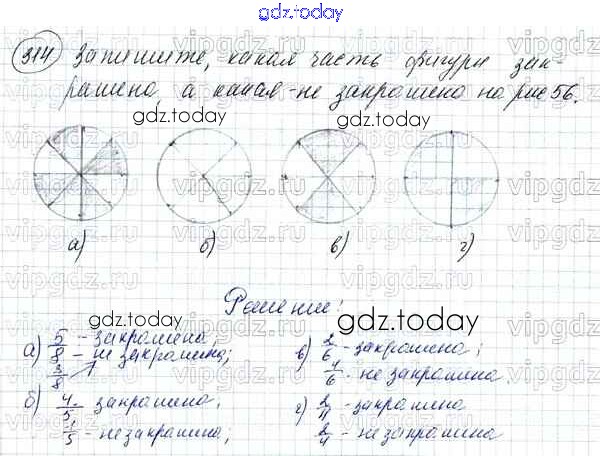 gdz.today
314 Запишите, какая часть фигуры зак-
рашена, а какая - не закрашена на рис 56.
gdz.today gdz.today
а) б) в) г)
Решение:
gdz.today
а) 5/8 - закрашены; в) 2/6 - закрашено;
3/8 - не закрашена; 4/6 - не закрашена.
б) 4/5 - закрашена; г) 2/4 - закрашена
1/5 - не закрашена; 2/4 - не закрашена
vipgdz.ru
gdz.today